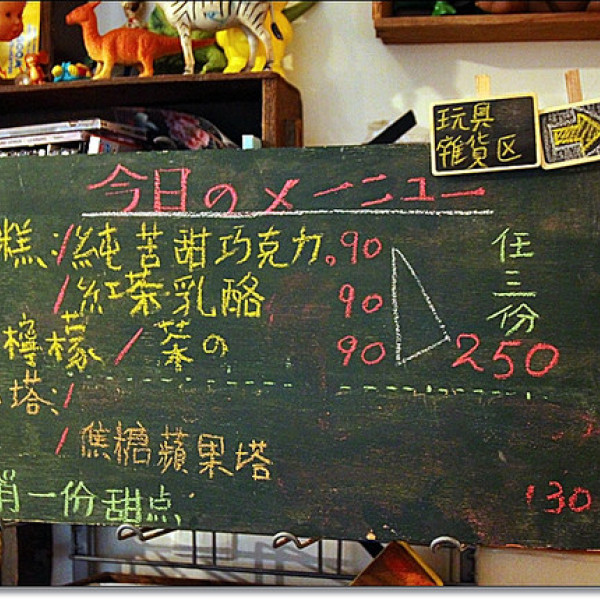 玩具
雜貨区
今日のメーニュー
糕:/純苦甜巧克力。90
/紅茶乳酪 90
檸檬/茶の 90
任三份
250
塔:/
/焦糖蘋果塔
一份甜点 130